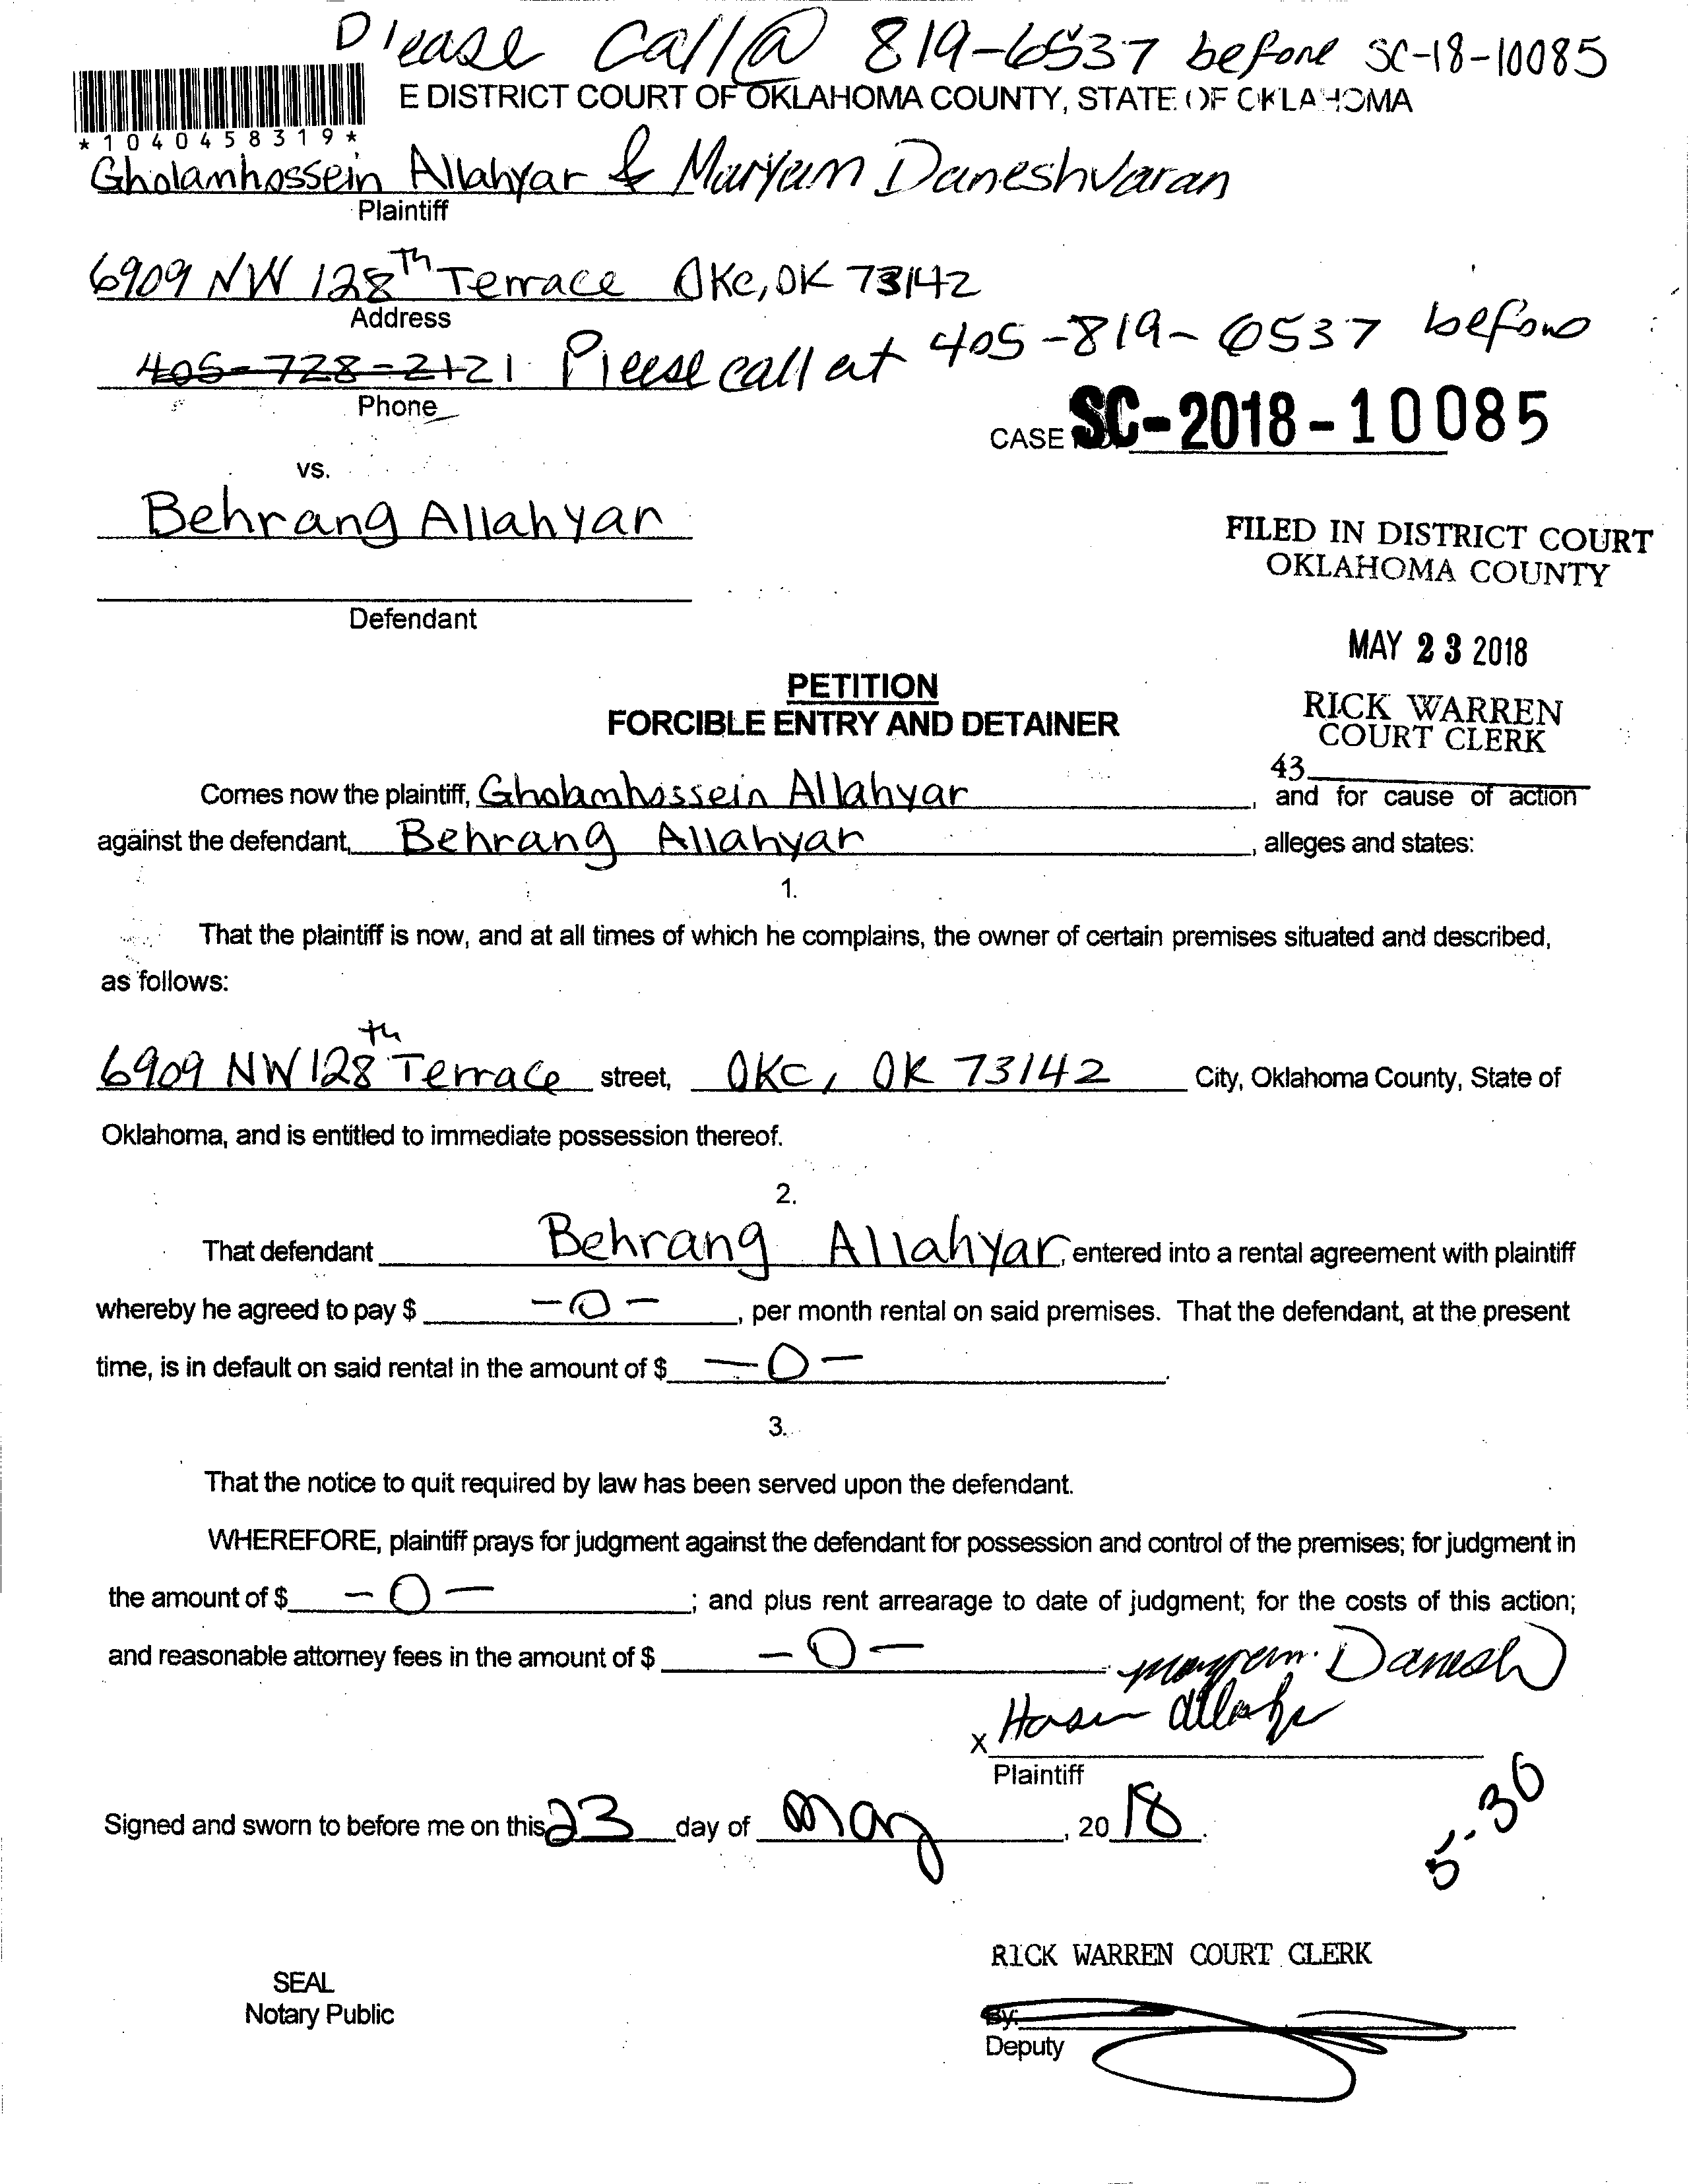 Please Call @ 819-6537 before SC-18-10085
E DISTRICT COURT OF OKLAHOMA COUNTY, STATE OF OKLAHOMA
*1040458319*
Gholamhossein Allahyar & Maryam Daneshvaran
Plaintiff
6909 NW 128th Terrace OKC, OK 73142
Address
405-728-2121 Pleese call at 405-819-6537 before
Phone
CASE SC-2018-10085
vs.
Behrang Allahyar
FILED IN DISTRICT COURT
OKLAHOMA COUNTY
Defendant
MAY 23 2018
PETITION
RICK WARREN
FORCIBLE ENTRY AND DETAINER
COURT CLERK
43
Comes now the plaintiff, Gholamhossein Allahyar, and for cause of action
against the defendant, Behrang Allahyar, alleges and states:
1.
That the plaintiff is now, and at all times of which he complains, the owner of certain premises situated and described,
as follows:
6909 NW 128th Terrace street, OKC, OK 73142 City, Oklahoma County, State of
Oklahoma, and is entitled to immediate possession thereof.
2.
That defendant Behrang Allahyar, entered into a rental agreement with plaintiff
whereby he agreed to pay $ -0-, per month rental on said premises. That the defendant, at the present
time, is in default on said rental in the amount of $ -0-.
3.
That the notice to quit required by law has been served upon the defendant.
WHEREFORE, plaintiff prays for judgment against the defendant for possession and control of the premises; for judgment in
the amount of $ -0-; and plus rent arrearage to date of judgment; for the costs of this action;
and reasonable attorney fees in the amount of $ -0-
Danesh
X
Plaintiff
Signed and sworn to before me on this 23 day of May, 2018.
5-30
RICK WARREN COURT CLERK
SEAL
Notary Public
By:
Deputy